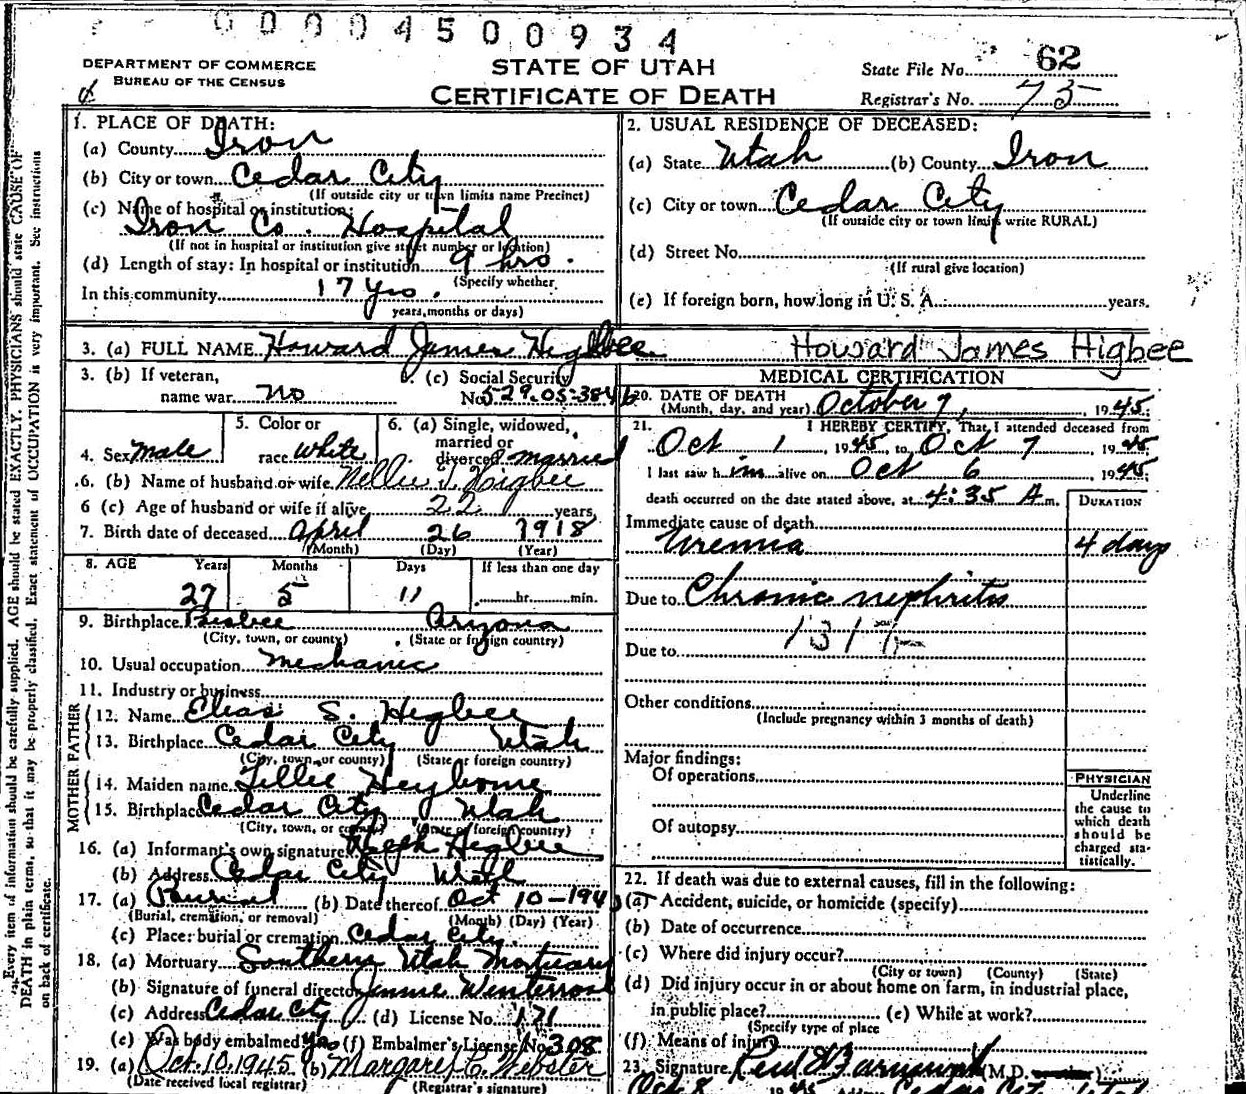 00004500934
DEPARTMENT OF COMMERCE
BUREAU OF THE CENSUS
STATE OF UTAH
CERTIFICATE OF DEATH
State File No. 62
Registrar's No. 75
1. PLACE OF DEATH:
(a) County Iron
(b) City or town Cedar City
(If outside city or town limits name Precinct)
(c) Name of hospital or institution:
Iron Co. Hospital
(If not in hospital or institution give street number or location)
(d) Length of stay: In hospital or institution 9 hrs.
(Specify whether
In this community 17 yrs.
years, months or days)
2. USUAL RESIDENCE OF DECEASED:
(a) State Utah (b) County Iron
(c) City or town Cedar City
(If outside city or town limits write RURAL)
(d) Street No.
(If rural give location)
(e) If foreign born, how long in U. S. A. years.
3. (a) FULL NAME Howard James Higbee Howard James Higbee
3. (b) If veteran,
name war no
(c) Social Security
No. 529-05-3846
4. Sex male
5. Color or
race white
6. (a) Single, widowed,
married or
divorced married
6. (b) Name of husband or wife Nellie J. Higbee
6 (c) Age of husband or wife if alive 22 years
7. Birth date of deceased April 26 1918
(Month) (Day) (Year)
8. AGE Years Months Days If less than one day
27 5 11 hr. min.
9. Birthplace Bisbee Arizona
(City, town, or county) (State or foreign country)
10. Usual occupation mechanic
11. Industry or business
FATHER
12. Name Elias S. Higbee
13. Birthplace Cedar City Utah
(City, town, or county) (State or foreign country)
MOTHER
14. Maiden name Lillie Heyborne
15. Birthplace Cedar City Utah
(City, town, or county) (State or foreign country)
16. (a) Informant's own signature Higbee
(b) Address Cedar City Utah
17. (a) Burial (b) Date thereof Oct 10-194
(Burial, cremation, or removal) (Month) (Day) (Year)
(c) Place: burial or cremation Cedar City
18. (a) Mortuary Southern Utah Mortuary
(b) Signature of funeral director Jennie Winterrose
(c) Address Cedar City (d) License No. 171
(e) Was body embalmed yes (f) Embalmer's License No. 308
19. (a) Oct. 10, 1945 (b) Margaret C. Webster
(Date received local registrar) (Registrar's signature)
MEDICAL CERTIFICATION
20. DATE OF DEATH
(Month, day, and year) October 7, 1945
21. I HEREBY CERTIFY, That I attended deceased from
Oct 1 1945, to Oct 7 1945
I last saw him alive on Oct 6 1945
death occurred on the date stated above, at 4:35 A m.
DURATION
Immediate cause of death
Uremia 4 days
Due to Chronic nephritis
131
Due to
Other conditions
(Include pregnancy within 3 months of death)
Major findings:
Of operations
Of autopsy
PHYSICIAN
Underline
the cause to
which death
should be
charged sta-
tistically.
22. If death was due to external causes, fill in the following:
(a) Accident, suicide, or homicide (specify)
(b) Date of occurrence
(c) Where did injury occur?
(City or town) (County) (State)
(d) Did injury occur in or about home on farm, in industrial place,
in public place? (e) While at work?
(Specify type of place
(f) Means of injury
23. Signature (M.D.
Oct 8 1945 Address Cedar City Utah
Every item of information should be carefully supplied. AGE should be stated EXACTLY. PHYSICIANS should state CAUSE OF
DEATH in plain terms, so that it may be properly classified. Exact statement of OCCUPATION is very important. See instructions
on back of certificate.